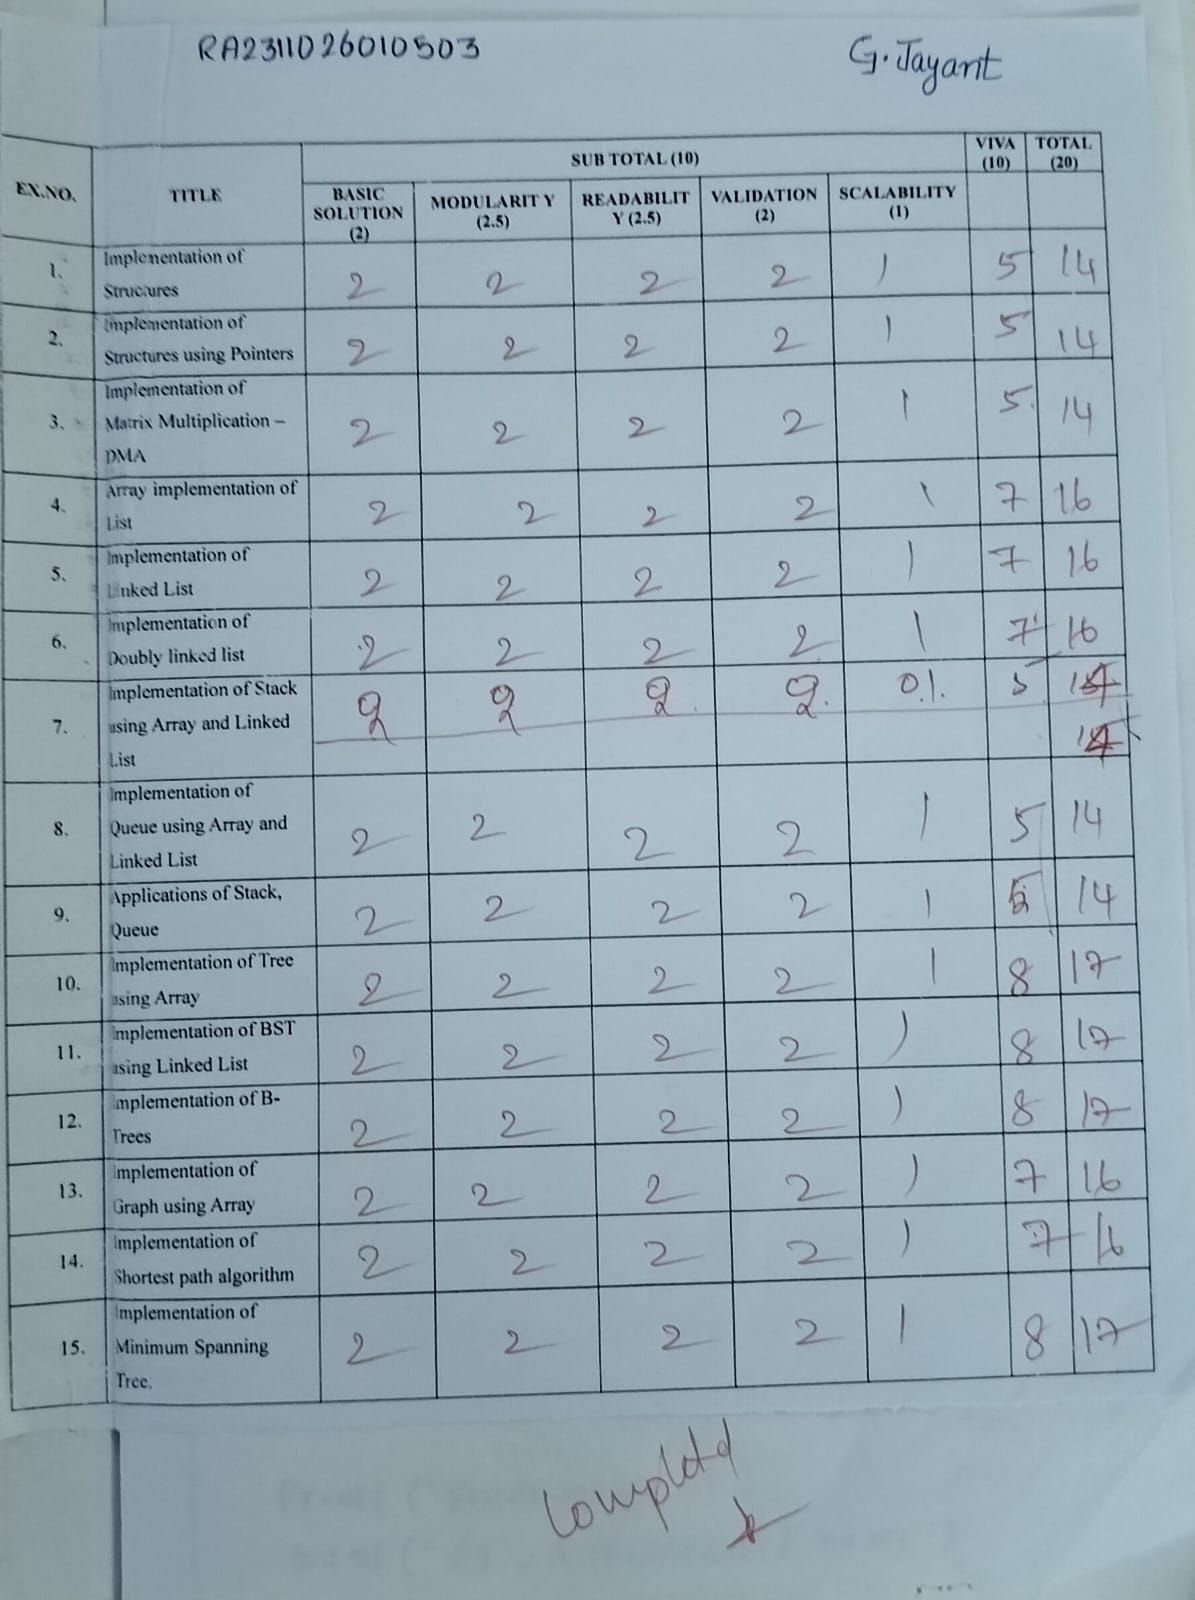 RA2311026010503
G. Jayant
EX.NO. TITLE SUB TOTAL (10) VIVA (10) TOTAL (20)
BASIC SOLUTION (2) MODULARIT Y (2.5) READABILIT Y (2.5) VALIDATION (2) SCALABILITY (1)
1. Implementation of Structures 2 2 2 2 1 5 14
2. Implementation of Structures using Pointers 2 2 2 2 1 5 14
3. Implementation of Matrix Multiplication – DMA 2 2 2 2 1 5 14
4. Array implementation of List 2 2 2 2 1 7 16
5. Implementation of Linked List 2 2 2 2 1 7 16
6. Implementation of Doubly linked list 2 2 2 2 1 7 16
7. Implementation of Stack using Array and Linked List 2 2 2 2 01. 5
8. Implementation of Queue using Array and Linked List 2 2 2 2 1 5 14
9. Applications of Stack, Queue 2 2 2 2 1 5 14
10. Implementation of Tree using Array 2 2 2 2 1 8 17
11. Implementation of BST using Linked List 2 2 2 2 1 8 17
12. Implementation of B-Trees 2 2 2 2 1 8 17
13. Implementation of Graph using Array 2 2 2 2 1 7 16
14. Implementation of Shortest path algorithm 2 2 2 2 1 7 16
15. Implementation of Minimum Spanning Tree. 2 2 2 2 1 8 17
Completed